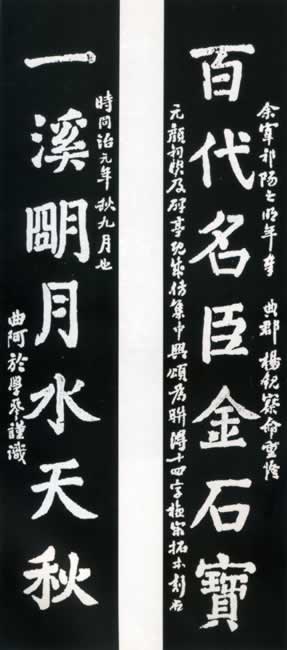 余宰祁陽之明年奉
郡楊觀察命重修
百代名臣金石寶
元顏祠及碑亭既成仿集中興頌為聯得十四字宋拓本刻石
時同治元年秋九月也
一溪朙月水天秋
曲阿於學琴謹識